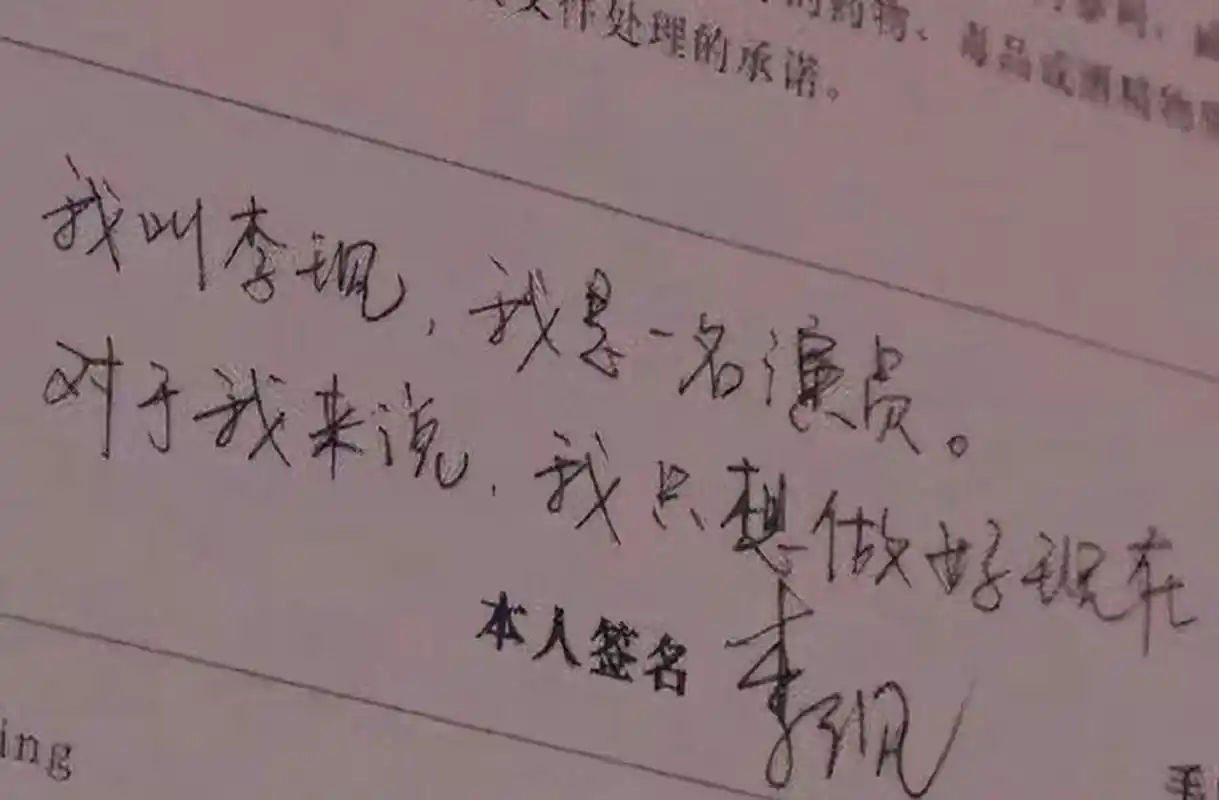 的药物、毒品或酒精物
文件处理的承诺。
我叫李现，我是一名演员。
对于我来说，我只想做好现在
本人签名 李现
ing